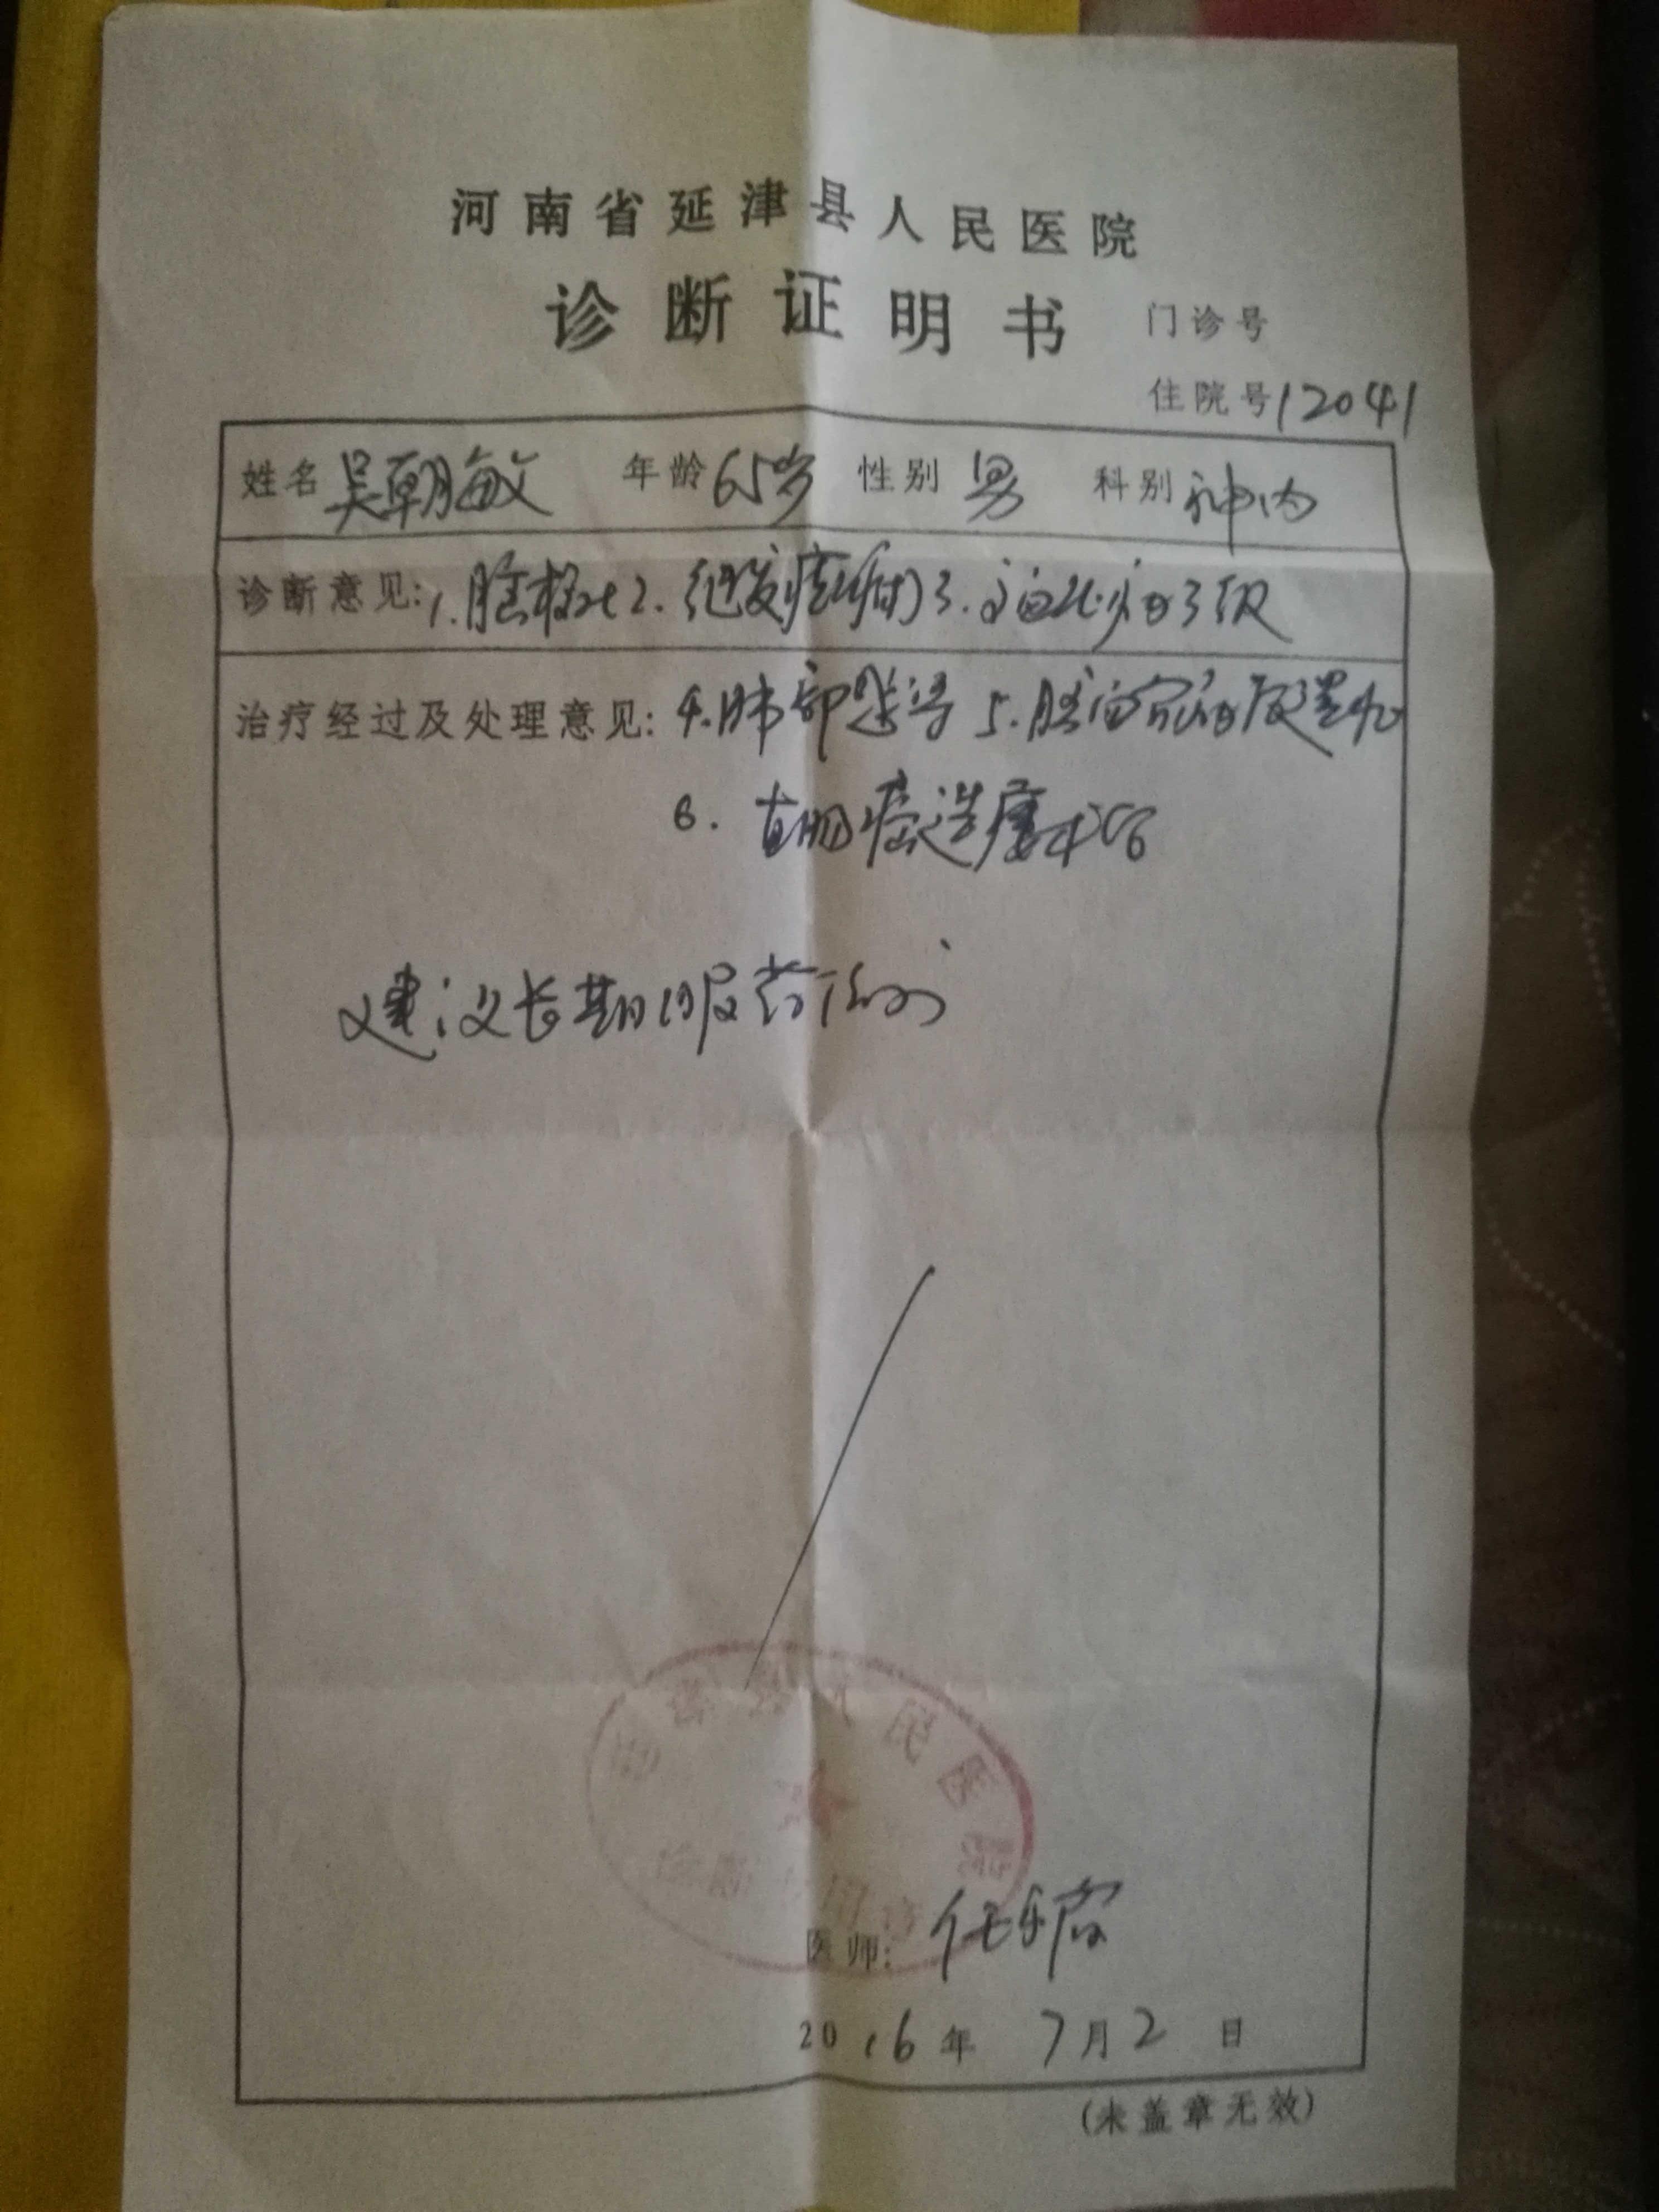 河南省延津县人民医院
诊断证明书 门诊号
住院号12041
姓名 吴朝敏 年龄 65岁 性别 男 科别 神内
诊断意见: 1.脑梗死 2.继发癫痫 3.高血压病3级
治疗经过及处理意见: 4.肺部感染 5.脑 后遗症
6.直肠癌造瘘术后
建议长期服药治疗
人民医院
医师: 任
2016年 7月2日
(未盖章无效)